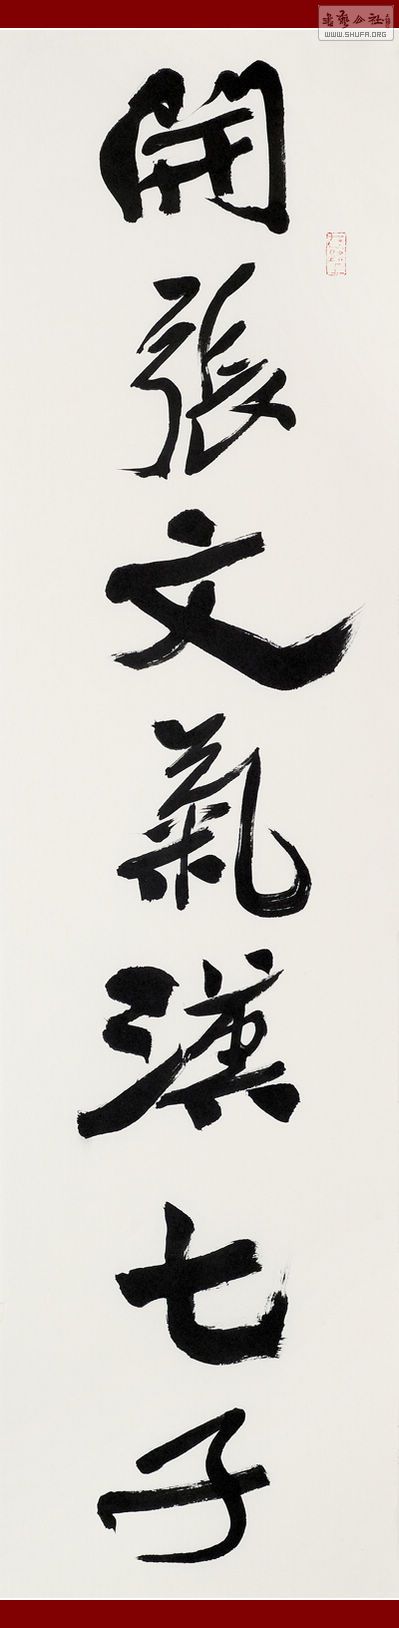 WWW.SHUFA.ORG
開張文氣漢七子